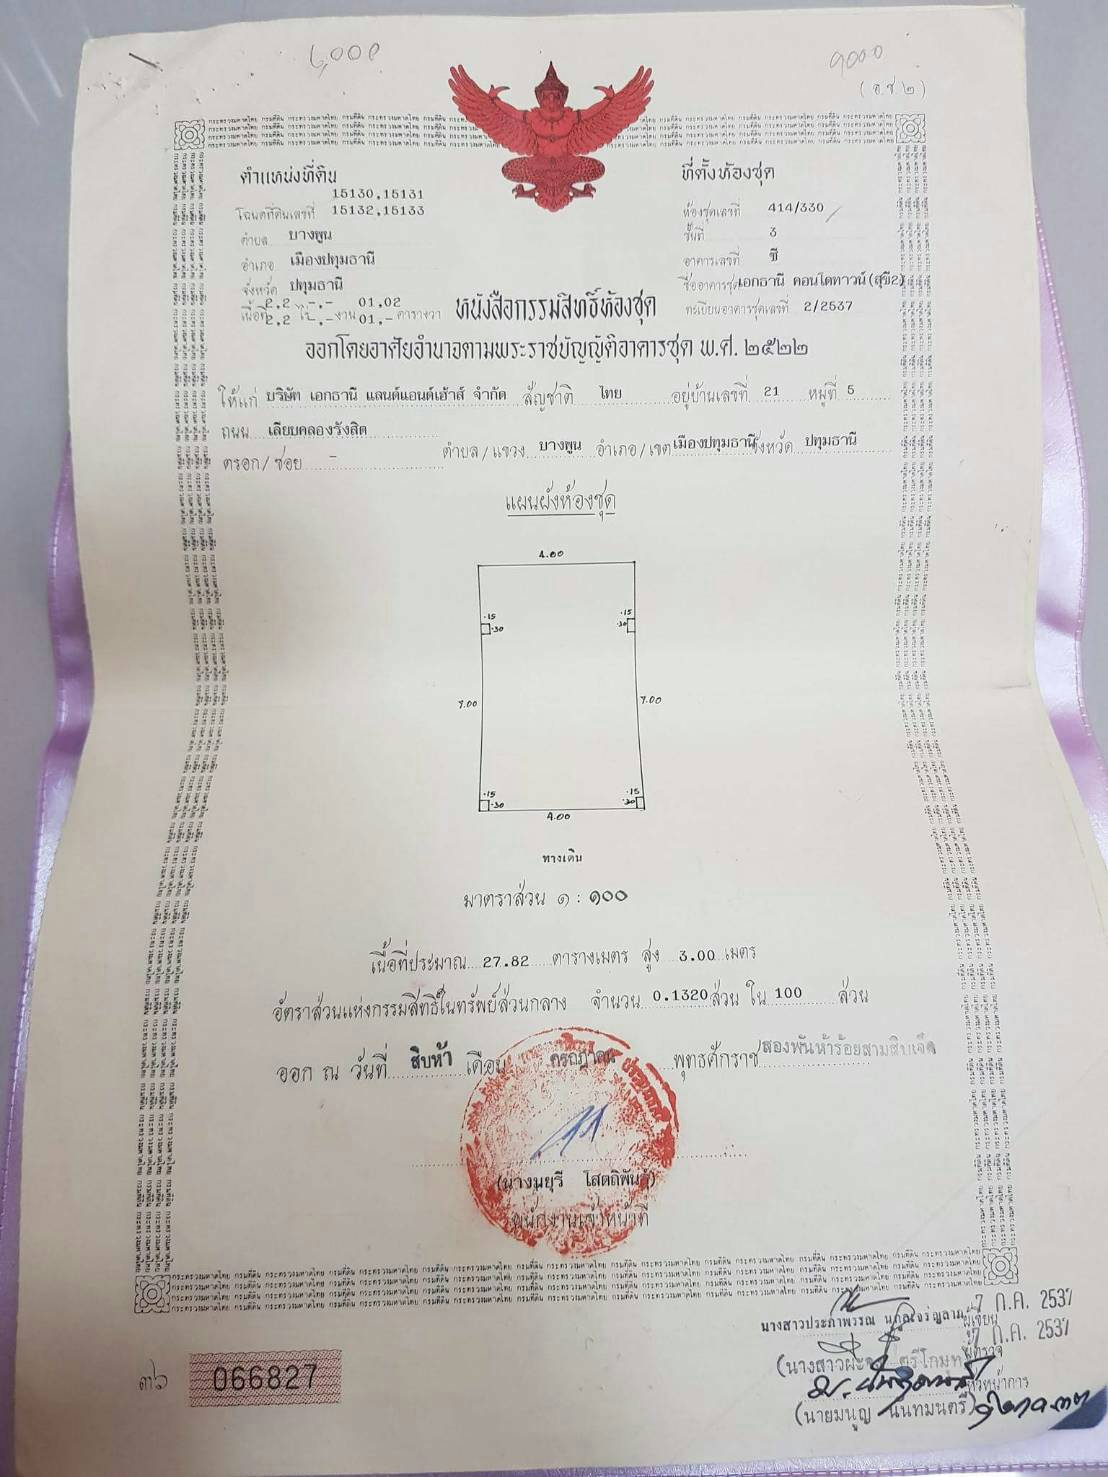 1,000
9000
( อ.ช.๒ )
ตำแหน่งที่ดิน
15130,15131
โฉนดที่ดินเลขที่ 15132,15133
ตำบล บางพูน
อำเภอ เมืองปทุมธานี
จังหวัด ปทุมธานี
2,2 -,- 01,02
เนื้อที่ 2,2 ไร่ -,- งาน 01,- ตารางวา
ที่ตั้งห้องชุด
ห้องชุดเลขที่ 414/330
ชั้นที่ 3
อาคารเลขที่ ซี
ชื่ออาคารชุด เอกธานี คอนโดทาวน์(สุขี2)
ทะเบียนอาคารชุดเลขที่ 2/2537
หนังสือกรรมสิทธิ์ห้องชุด
ออกโดยอาศัยอำนาจตามพระราชบัญญัติอาคารชุด พ.ศ. ๒๕๒๒
ให้แก่ บริษัท เอกธานี แลนด์แอนด์เฮ้าส์ จำกัด สัญชาติ ไทย อยู่บ้านเลขที่ 21 หมู่ที่ 5
ถนน เลียบคลองรังสิต
ตรอก/ซอย - ตำบล/แขวง บางพูน อำเภอ/เขต เมืองปทุมธานี จังหวัด ปทุมธานี
แผนผังห้องชุด
4.00
.15 .15
.30 .30
7.00 7.00
.15 .15
.30 .30
4.00
ทางเดิน
มาตราส่วน ๑ : ๑๐๐
เนื้อที่ประมาณ 27.82 ตารางเมตร สูง 3.00 เมตร
อัตราส่วนแห่งกรรมสิทธิ์ในทรัพย์ส่วนกลาง จำนวน 0.1320 ส่วน ใน 100 ส่วน
ออก ณ วันที่ สิบห้า เดือน กรกฎาคม พุทธศักราช สองพันห้าร้อยสามสิบเจ็ด
(นางมยุรี โสตถิพันธุ์)
พนักงานเจ้าหน้าที่
7 ก.ค. 2537
นางสาวประภาพรรณ ผู้เขียน
7 ก.ค. 2537
ผู้ตรวจ
(นางสาว ตรีโกมุท
หัวหน้าการ
(นายมนูญ นันทมนตรี)
๓๖ 066827